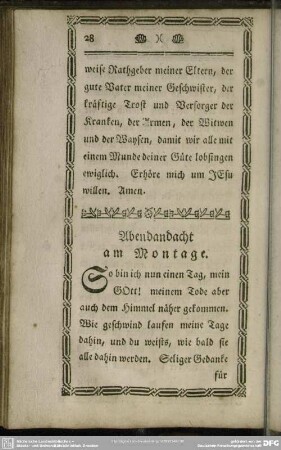 28
weise Rathgeber meiner Eltern, der
gute Vater meiner Geschwister, der
kräftige Trost und Versorger der
Kranken, der Armen, der Witwen
und der Waysen, damit wir alle mit
einem Munde deiner Güte lobsingen
ewiglich. Erhöre mich um JEsu
willen. Amen.
Abendandacht
am Montage.
So bin ich nun einen Tag, mein
GOtt! meinem Tode aber
auch dem Himmel näher gekommen.
Wie geschwind laufen meine Tage
dahin, und du weists, wie bald sie
alle dahin werden. Seliger Gedanke
für
DFG